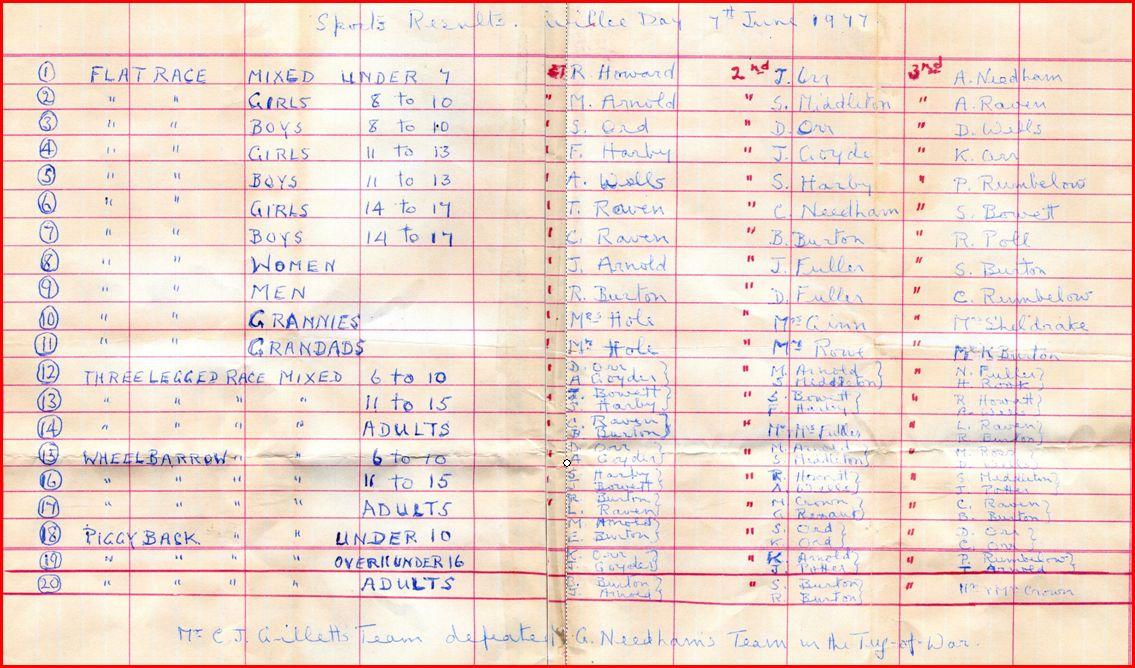 Sports Results. Day 7th June 1977
① FLAT RACE MIXED UNDER 7 R. Howard 2nd J. Orr 3rd A. Needham
② " " GIRLS 8 to 10 " M. Arnold " S. Middleton " A. Raven
③ " " BOYS 8 to 10 " S. Ord " D. Orr " D. Wells
④ " " GIRLS 11 to 13 " F. Harby " J. Goyde " K. Orr
⑤ " " BOYS 11 to 13 " A. Wells " S. Harby " P. Rumbelow
⑥ " " GIRLS 14 to 17 " T. Raven " C. Needham " S. Bowett
⑦ " " BOYS 14 to 17 " C. Raven " B. Burton " R. Poll
⑧ " " WOMEN " J. Arnold " J. Fuller " S. Burton
⑨ " " MEN " R. Burton " D. Fuller " C. Rumbelow
⑩ " " GRANNIES " Mrs Hole " Mrs Ginn " Mrs Sheldrake
⑪ " " GRANDADS " Mr Hole " Mr Rowe " Mr K Burton
⑫ THREE LEGGED RACE MIXED 6 to 10 D. Orr A Goyder} " M. Arnold S Middleton} " N. Fuller H. Rook}
⑬ " " " " 11 to 15 Bowett S. Harby} " S. Bowett F Harby} " R. Howett}
⑭ " " " " ADULTS Raven B Burton} " Mr Mrs Fuller " L. Raven R. Burton}
⑮ WHEELBARROW " " 6 to 10 D. Orr A Goyder} " M. Arnold S Middleton} " M. Ross
⑯ " " " " 11 to 15 S. Harby Bowett} " R. Howett " S. Middleton J. Potter}
⑰ " " " " ADULTS R Burton L. Raven} " M Crown G. " C. Raven B. Burton}
⑱ PIGGY BACK " " UNDER 10 M. Arnold E. Burton} " S. Ord K. Ord} " D. Orr C. Orr}
⑲ " " " " OVER 11 UNDER 16 K. Orr Goyder} " K. Arnold J. Potter} " P. Rumbelow T. Arnold}
⑳ " " " " ADULTS Burton J. Arnold} " S. Burton R. Burton} " Mr & Mrs Crown
Mr C. J. Gillett's Team defeated G. Needham's Team in the Tug-of-War.